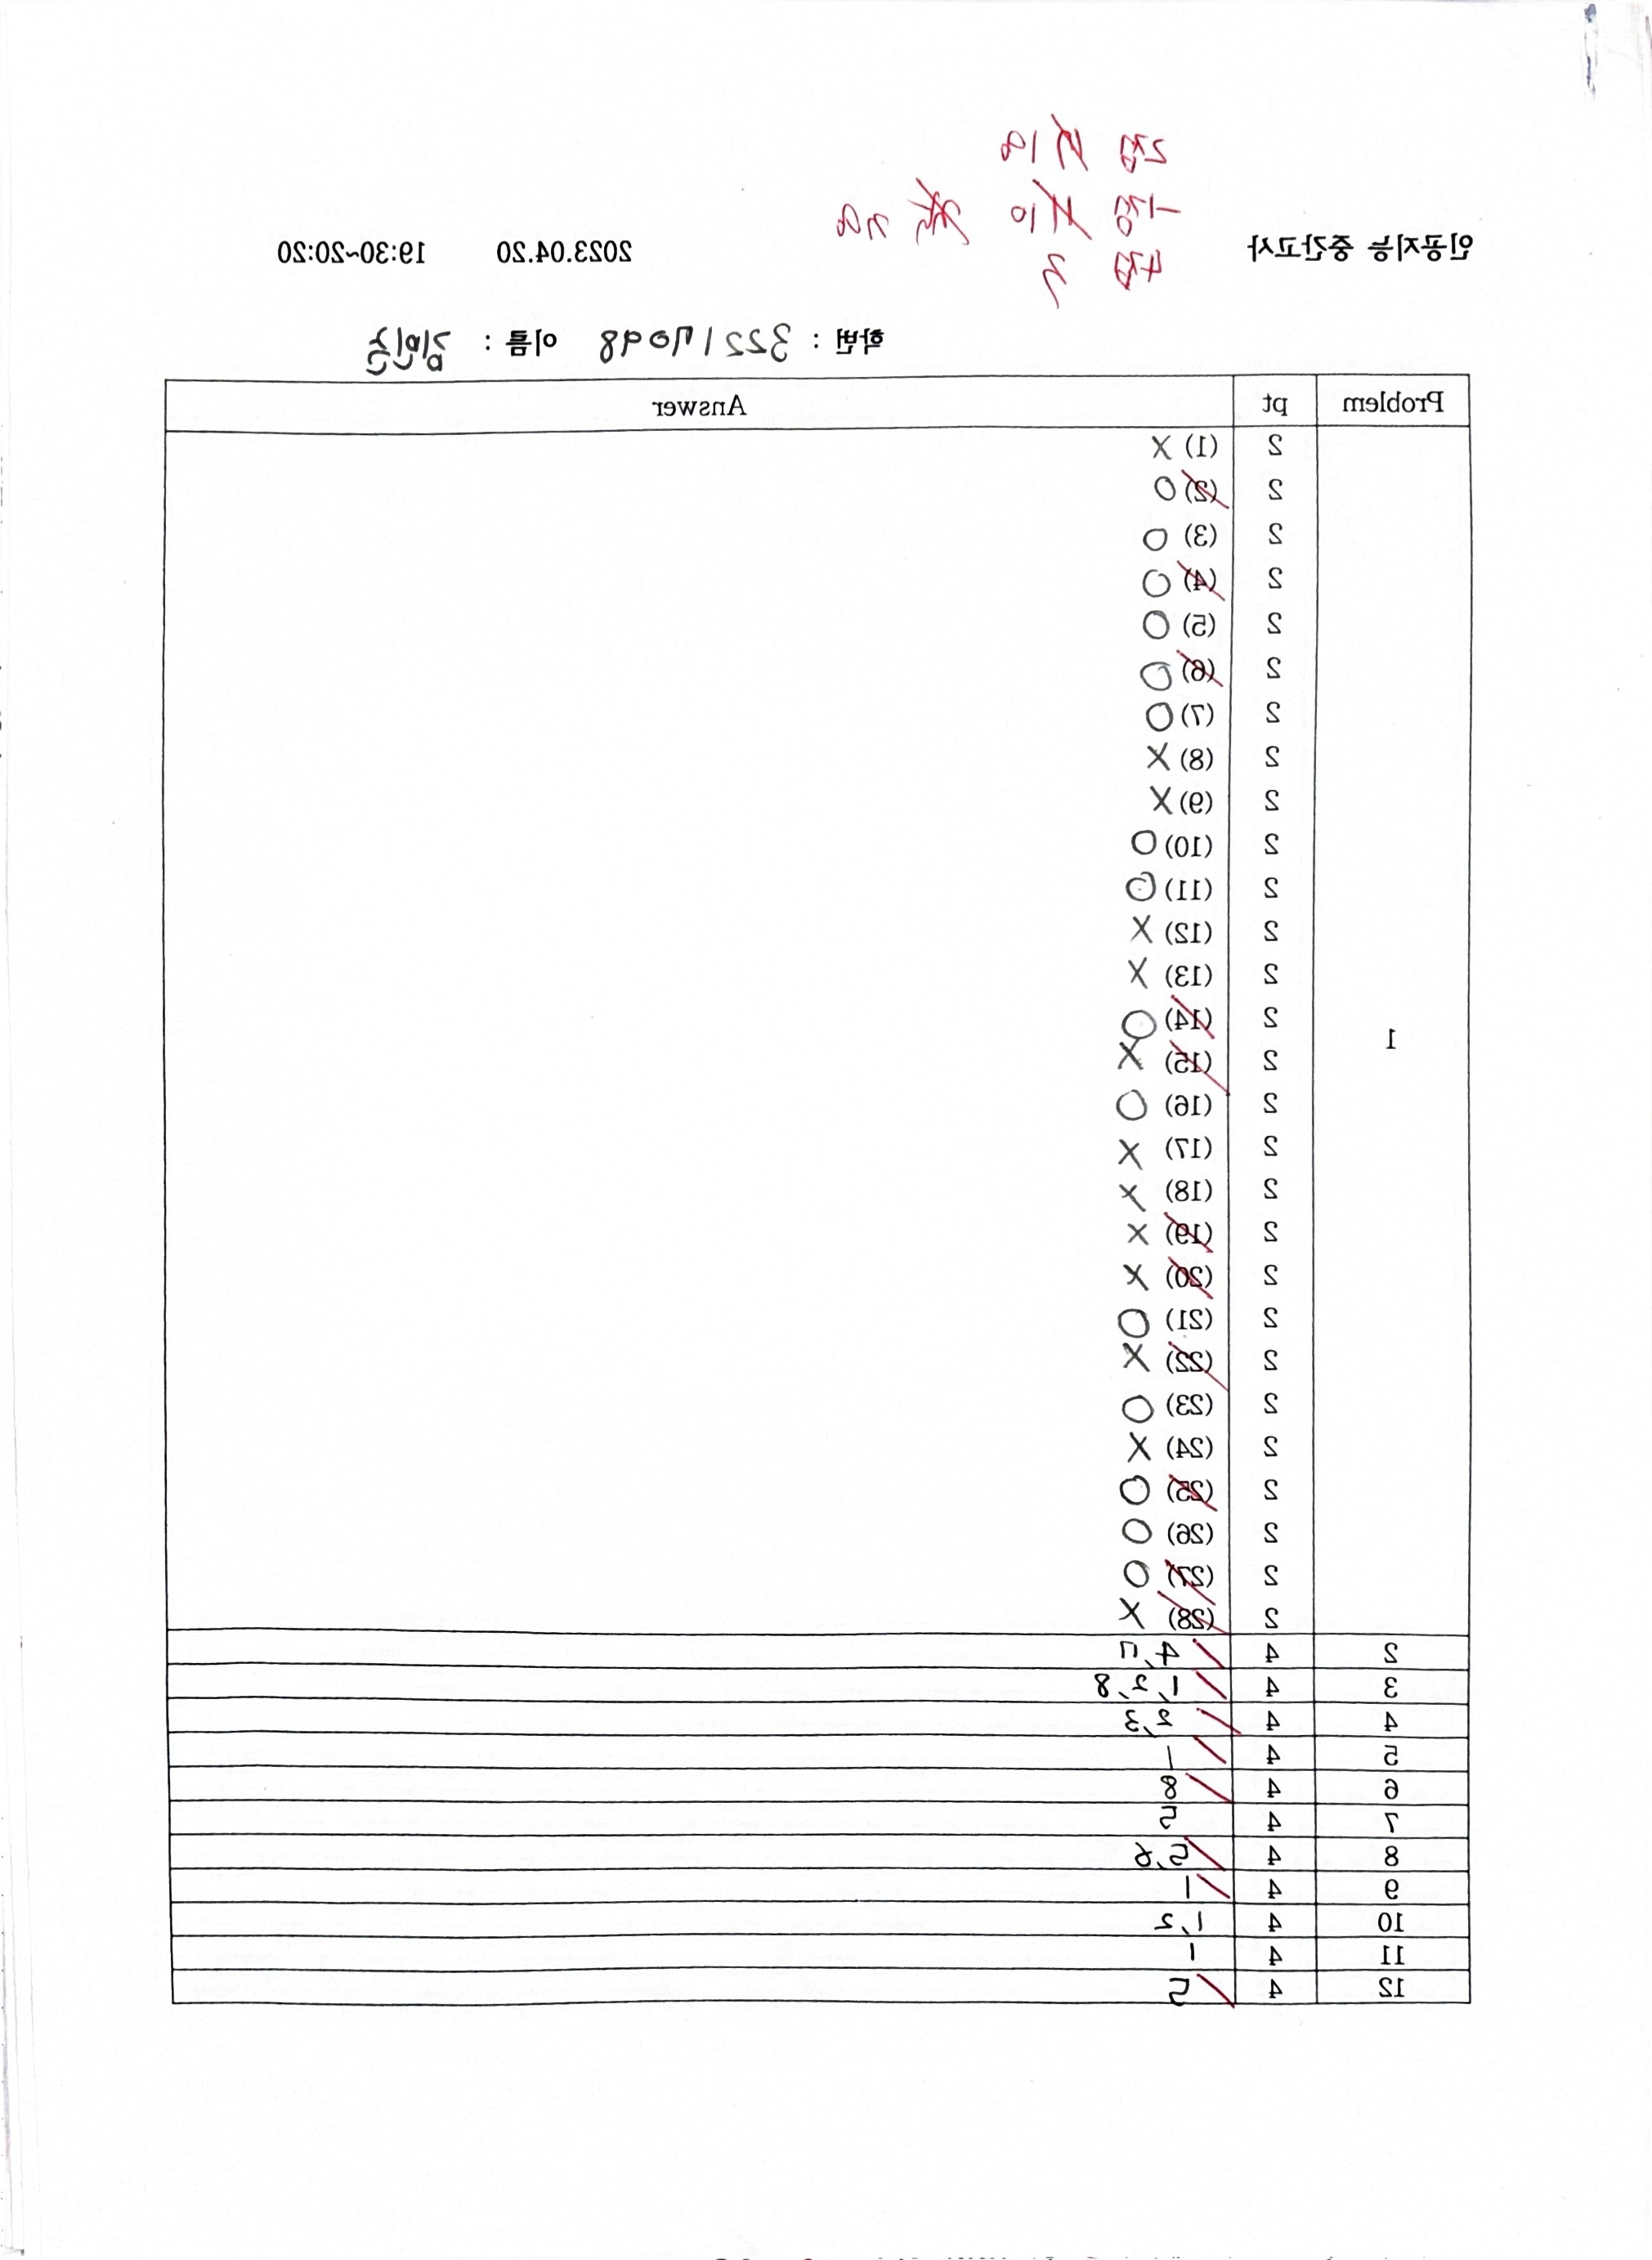 2점 18
-1점 10
4점 3
인공지능 중간고사 2023.04.20 19:30~20:20
학번 : 32217098 이름 : 김민준
Problem pt Answer
1
2 (1) X
2 (2) O
2 (3) O
2 (4) O
2 (5) O
2 (6) O
2 (7) O
2 (8) X
2 (9) X
2 (10) O
2 (11) O
2 (12) X
2 (13) X
2 (14) O
2 (15) X
2 (16) O
2 (17) X
2 (18) X
2 (19) X
2 (20) X
2 (21) O
2 (22) X
2 (23) O
2 (24) X
2 (25) O
2 (26) O
2 (27) O
2 (28) X
2 4 4, 7
3 4 1, 2, 8
4 4 2, 3
5 4 1
6 4 8
7 4 5
8 4 5, 8
9 4 1
10 4 1, 2
11 4 1
12 4 5